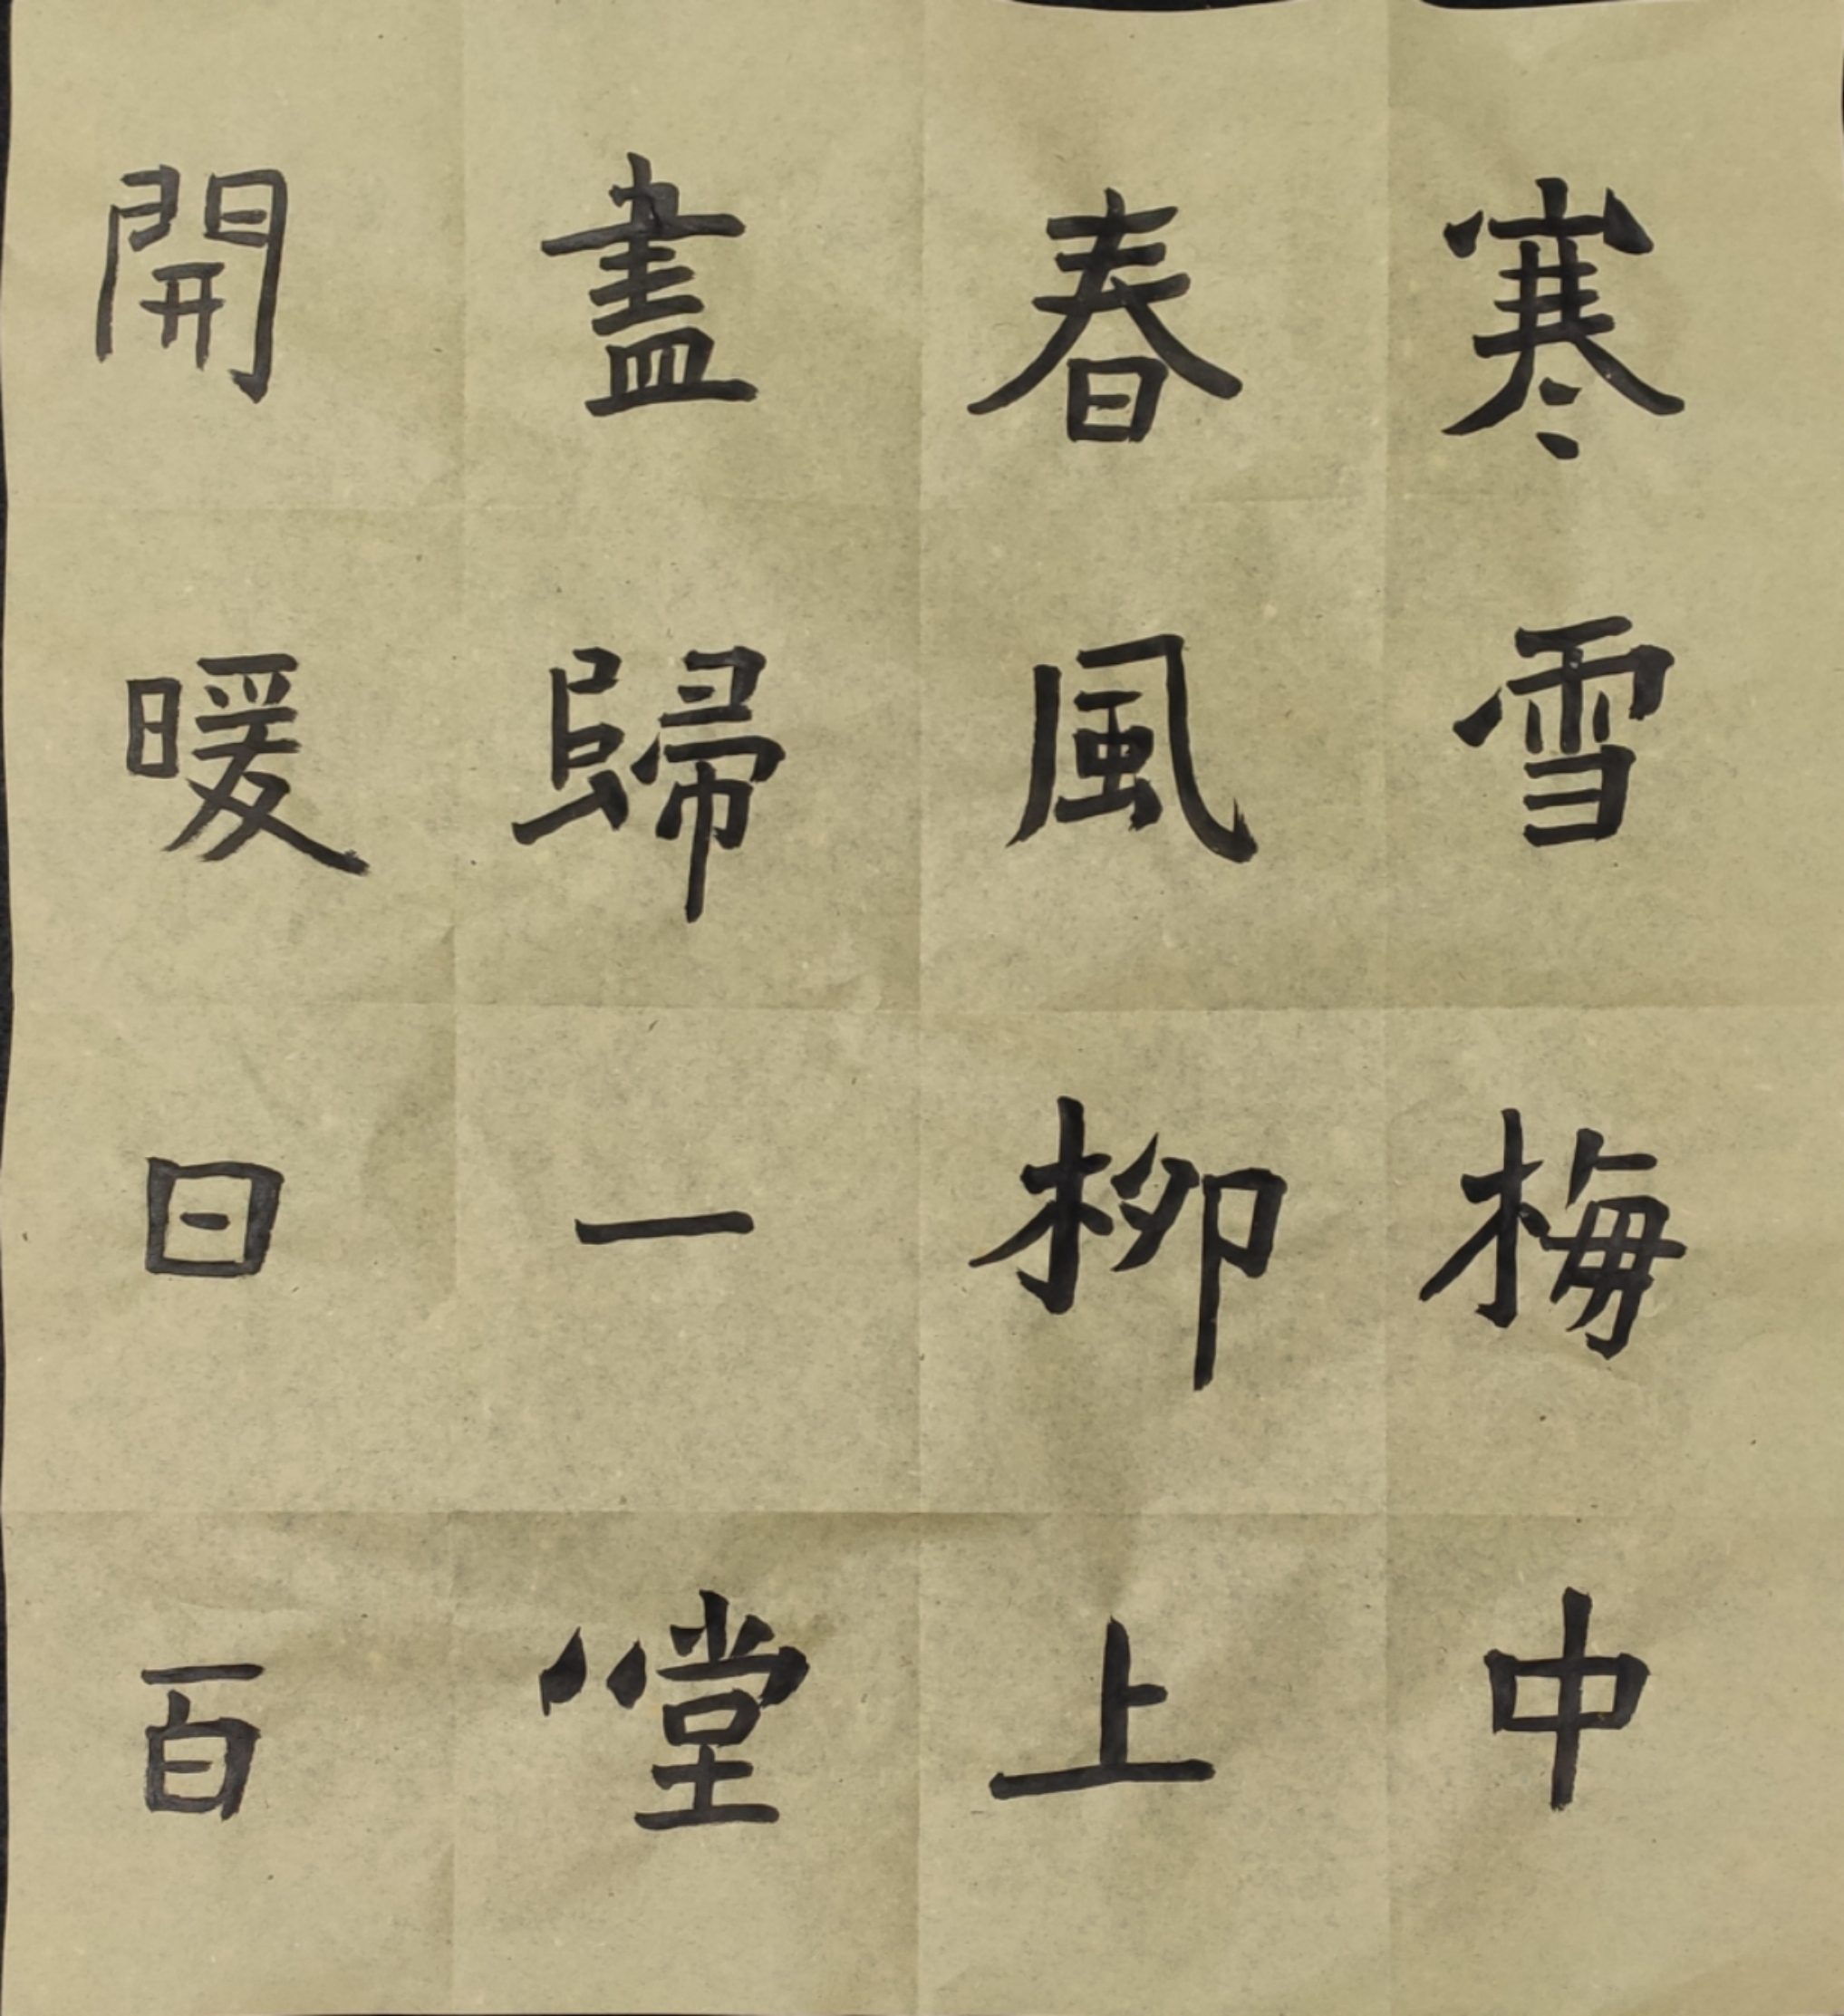 寒雪梅中
春風柳上
盡歸一堂
開暖日百